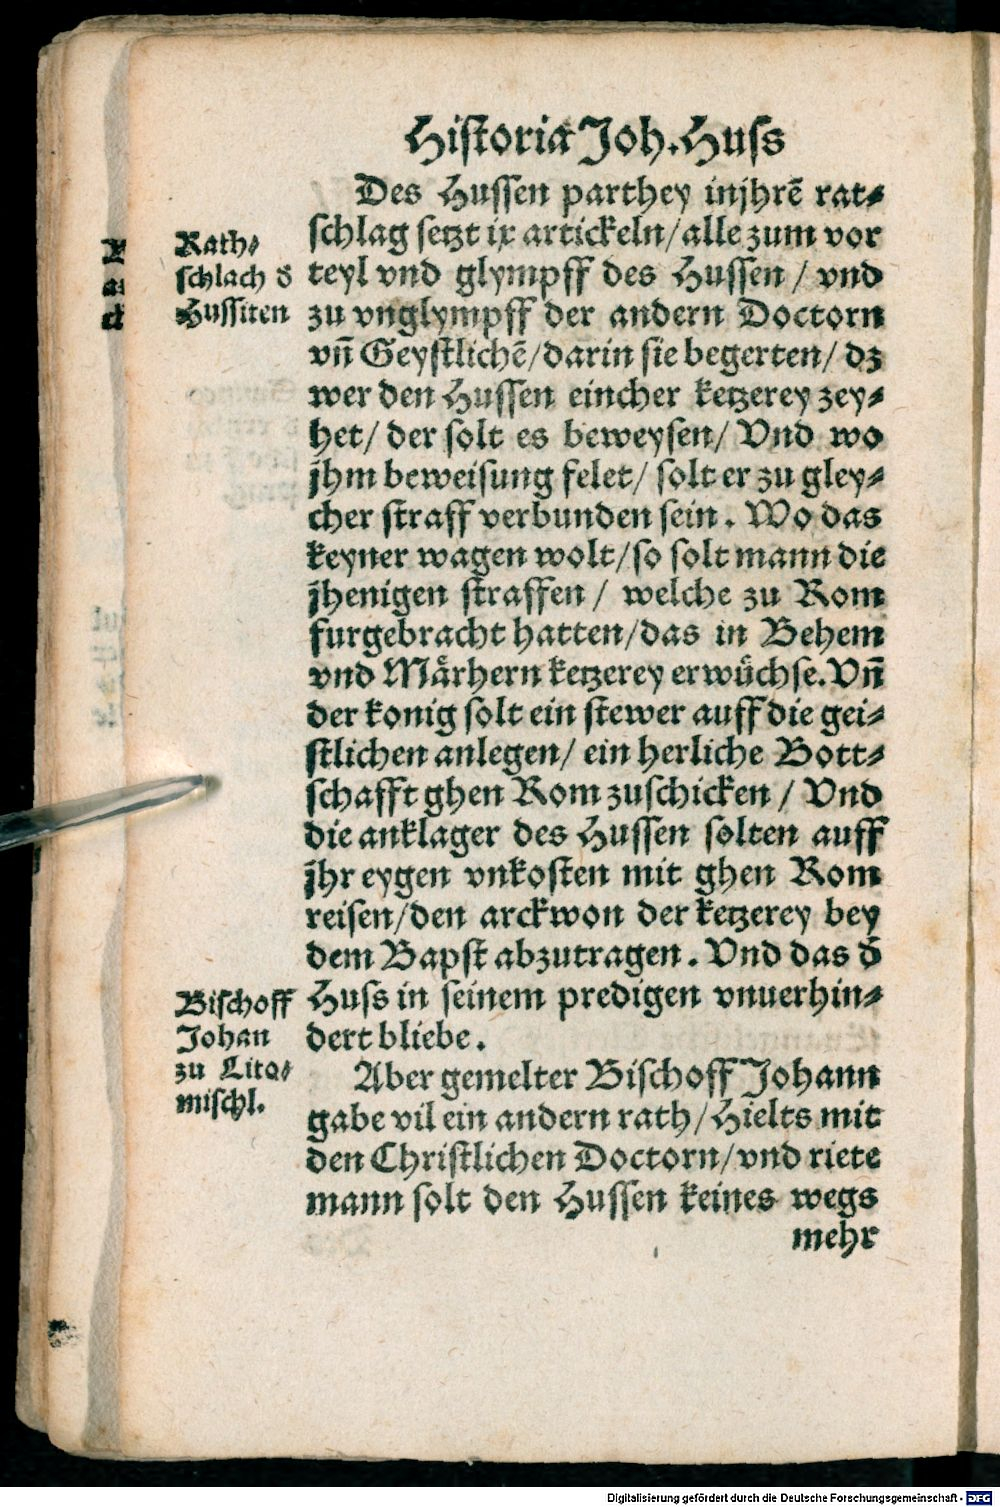 Historia Joh. Huss
Des Hussen parthey injhrē rat⸗
schlag setzt ix artickeln/alle zum vor
teyl vnd glympff des Hussen / vnd
zu vnglympff der andern Doctorn
vn̄ Geystlichē/darin sie begerten/ dz
wer den Hussen eincher ketzerey zey⸗
het/ der solt es beweysen/ Vnd wo
jhm beweisung felet/ solt er zu gley⸗
cher straff verbunden sein. Wo das
keyner wagen wolt/so solt mann die
jhenigen straffen / welche zu Rom
furgebracht hatten/das in Behem
vnd Mårhern ketzerey erwůchse. Vn̄
der konig solt ein stewer auff die gei⸗
stlichen anlegen/ ein herliche Bott⸗
schafft ghen Rom zuschicken / Vnd
die anklager des Hussen solten auff
jhr eygen vnkosten mit ghen Rom
reisen/den arckwon der ketzerey bey
dem Bapst abzutragen. Vnd das d̄
Huss in seinem predigen vnuerhin⸗
dert bliebe.
Aber gemelter Bischoff Johann
gabe vil ein andern rath/Hielts mit
den Christlichen Doctorn/vnd riete
mann solt den Hussen keines wegs
mehr
Rath⸗
schlach d̄
Hussiten
Bischoff
Johan
zu Lito⸗
mischl.
Digitalisierung gefördert durch die Deutsche Forschungsgemeinschaft - DFG